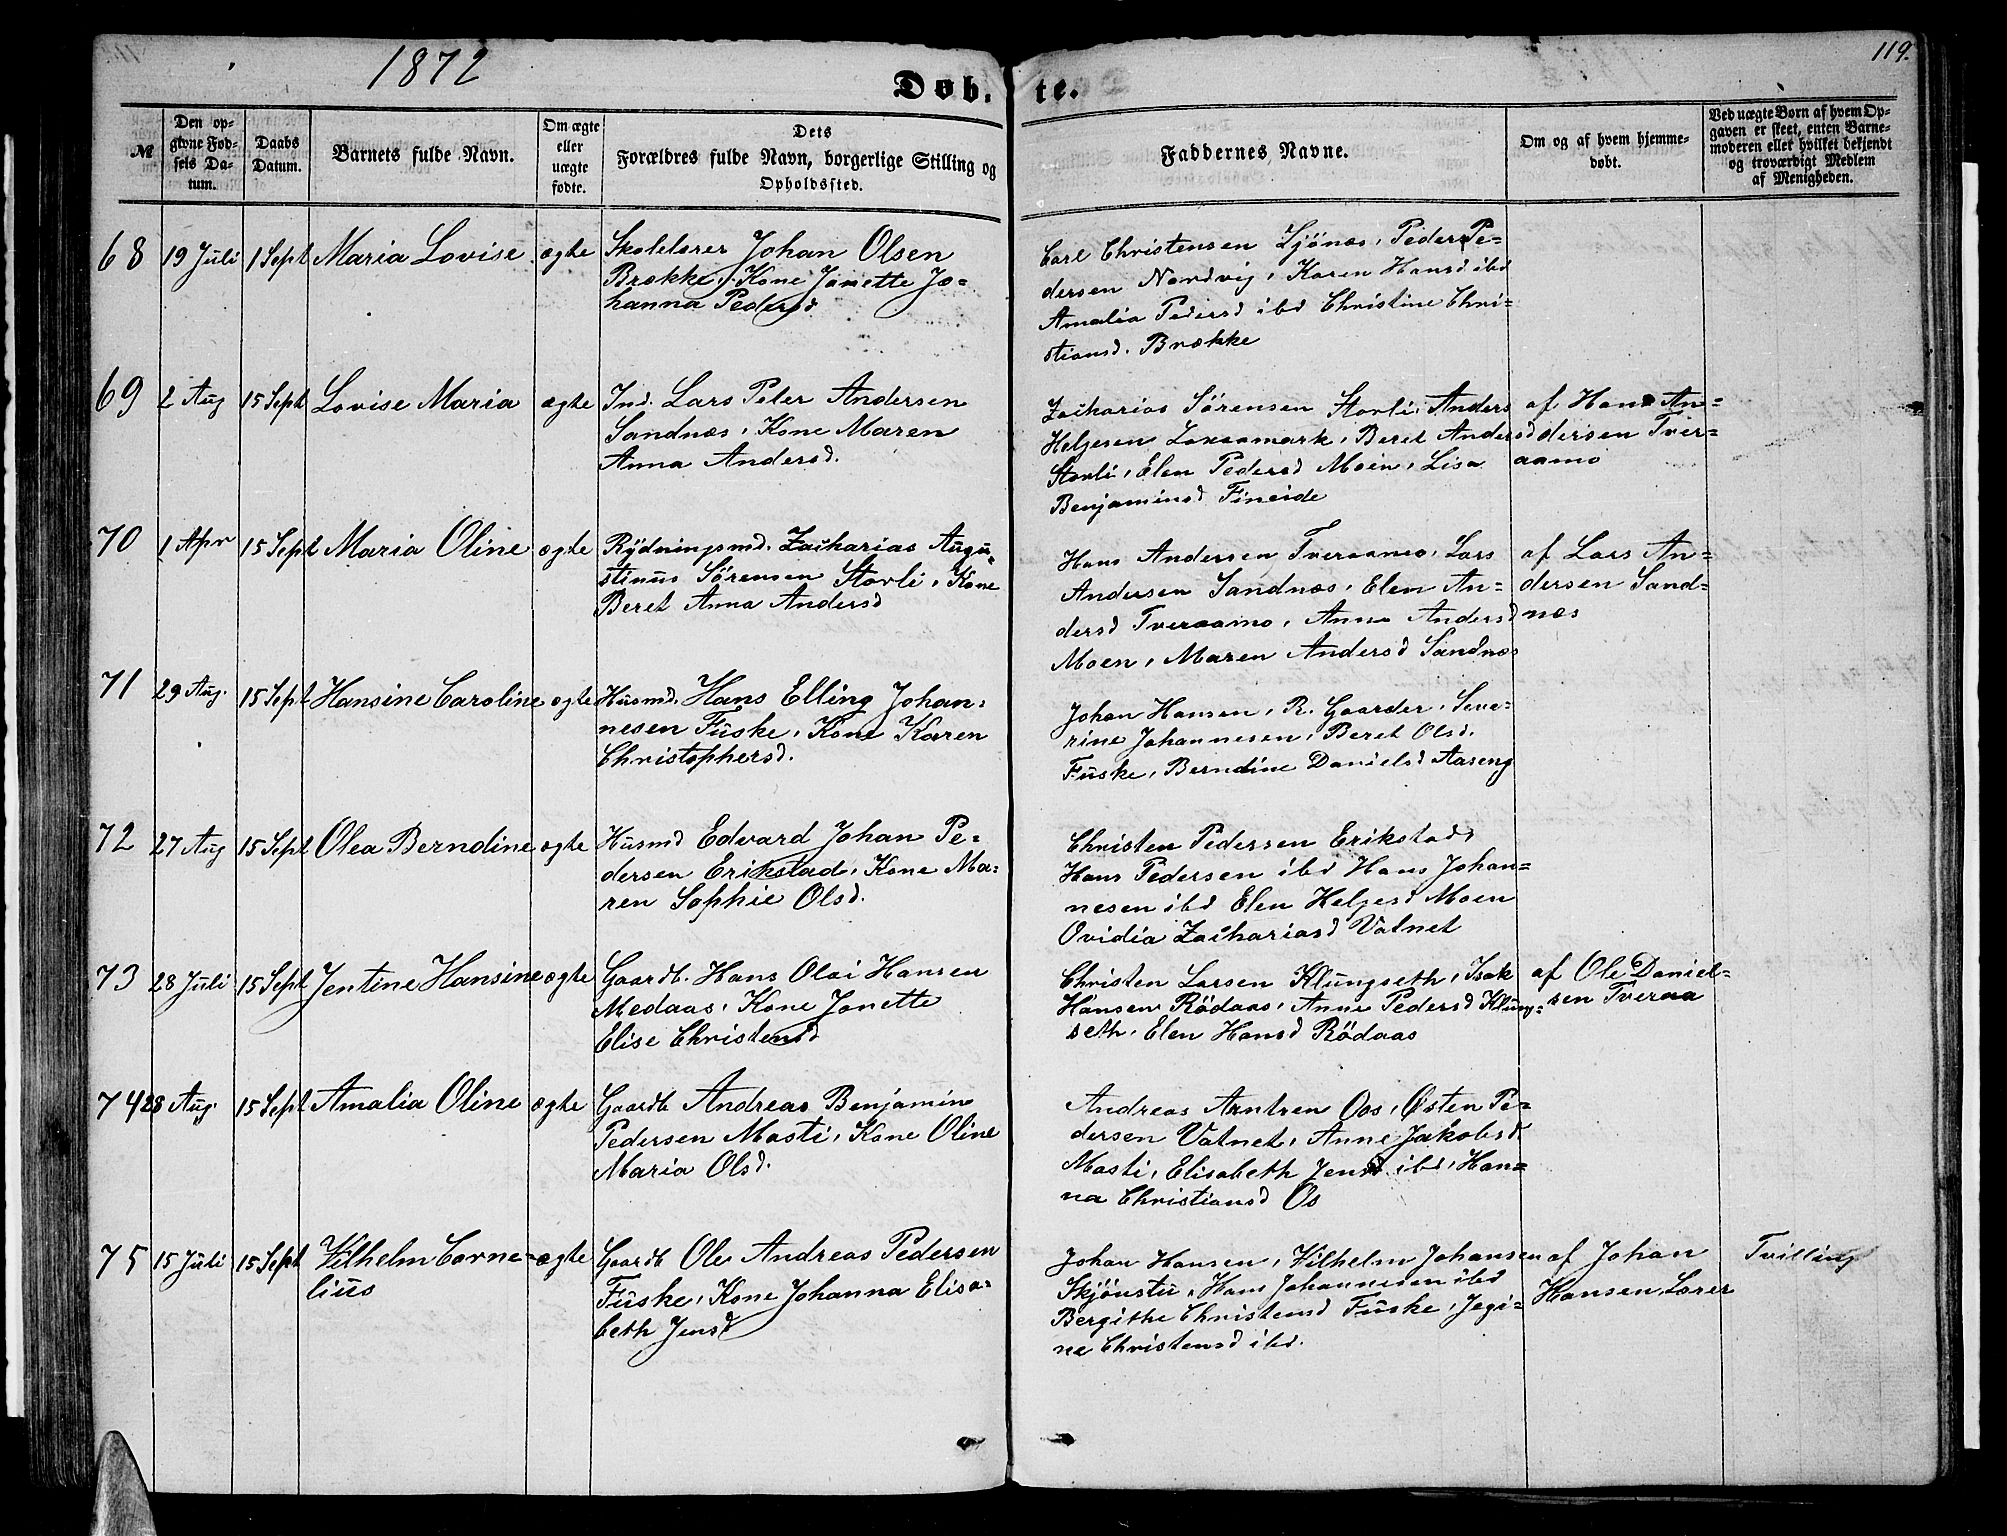 1872
119.
Døb.
te.
№
Den op-
givne Fød-
sels Da-
tum.
Daabs
Datum.
Barnets fulde Navn.
Om ægte
eller
uægte
fødte.
Dets
Forældres fulde Navn, borgerlige Stilling og
Opholdssted.
Faddernes Navne.
Om og af hvem hjemme-
døbt.
Ved uægte Børn af hvem Op-
gaven er skeet, enten Barne-
moderen eller hvilket bekjendt
og troværdigt Medlem
af Menigheden.
68 19 Juli 1 Sept Maria Lovise ægte Skolelærer Johan Olsen
Brække, Kone Janette Jo=
hanna Pedersd
Carl Christensen Ljönæs, Peder Pe=
dersen Nordvig, Karen Hansd ibd
Amalia Pedersd ibd Christine Chri=
stiansd. Brække
69 2 Aug 15 Sept Lovise Maria ægte Ind. Lars Peter Andersen
Sandnæs, Kone Maren
Anna Andersd.
Zacharias Sörensen Storli, Anders
Helgesen Laxaamark, Beret Andersd
Storli, Elen Pedersd Moen, Lisa
Benjaminsd Fineide
af Hans An=
dersen Tver=
aamo
70 1 Apr 15 Sept Maria Oline ægte Rÿdningsmd. Zacharias Augu=
stinus Sörensen Storli, Kone
Beret Anna Andersd
Hans Andersen Tveraamo, Lars
Andersen Sandnæs, Elen An=
dersd Tveraamo, Anna Andersd
Moen, Maren Andersd Sandnæs
af Lars An=
dersen Sand=
næs
71 29 Aug. 15 Sept Hansine Caroline ægte Husmd. Hans Elling Johan=
nesen Fuske, Kone Karen
Christophersd.
Johan Hansen, R. Gaarder, Seve=
rine Johannesen, Beret Olsd.
Fuske, Berndine Danielsd Aaseng
72 27 Aug 15 Sept Olea Berndine ægte Husmd Edvard Johan Pe=
dersen Erikstad, Kone Ma=
ren Sophie Olsd.
Christen Pedersen Erikstad,
Hans Pedersen ibd Hans Johan=
nesen ibd Elen Helgesd Moen
Ovidia Zachariasd Vatnet
73 28 Juli 15 Sept Jentine Hansine ægte Gaardb. Hans Olai Hansen
Medaas, Kone Janette
Elise Christensd
Christen Larsen Klungseth, Isak
Hansen Rödaas, Anne Pedersd Klung=
seth, Elen Hansd Rödaas
af Ole Daniel=
sen Tveraa
74 28 Aug. 15 Sept Amalia Oline ægte Gaardb Andreas Benjamin
Pedersen Mosti, Kone Oline
Maria Olsd.
Andreas Arntzen Oos, Østen Pe=
dersen Vatnet, Anne Jakobsd
Mosti, Elisabeth Jensd ibd, Han=
na Christiansd Os
75 15 Juli 15 Sept Vilhelm Corne= ægte Gaardb Ole Andreas Pedersen
lius
Fuske, Kone Johanna Elisa=
beth Jensd
Johan Hansen, Vilhelm Johansen
Skjönstu, Hans Johannesen ibd
Bergithe Christensd Fuske, Jegi=
ne Christensd ibd.
af Johan
Hansen, Lærer
Tvilling